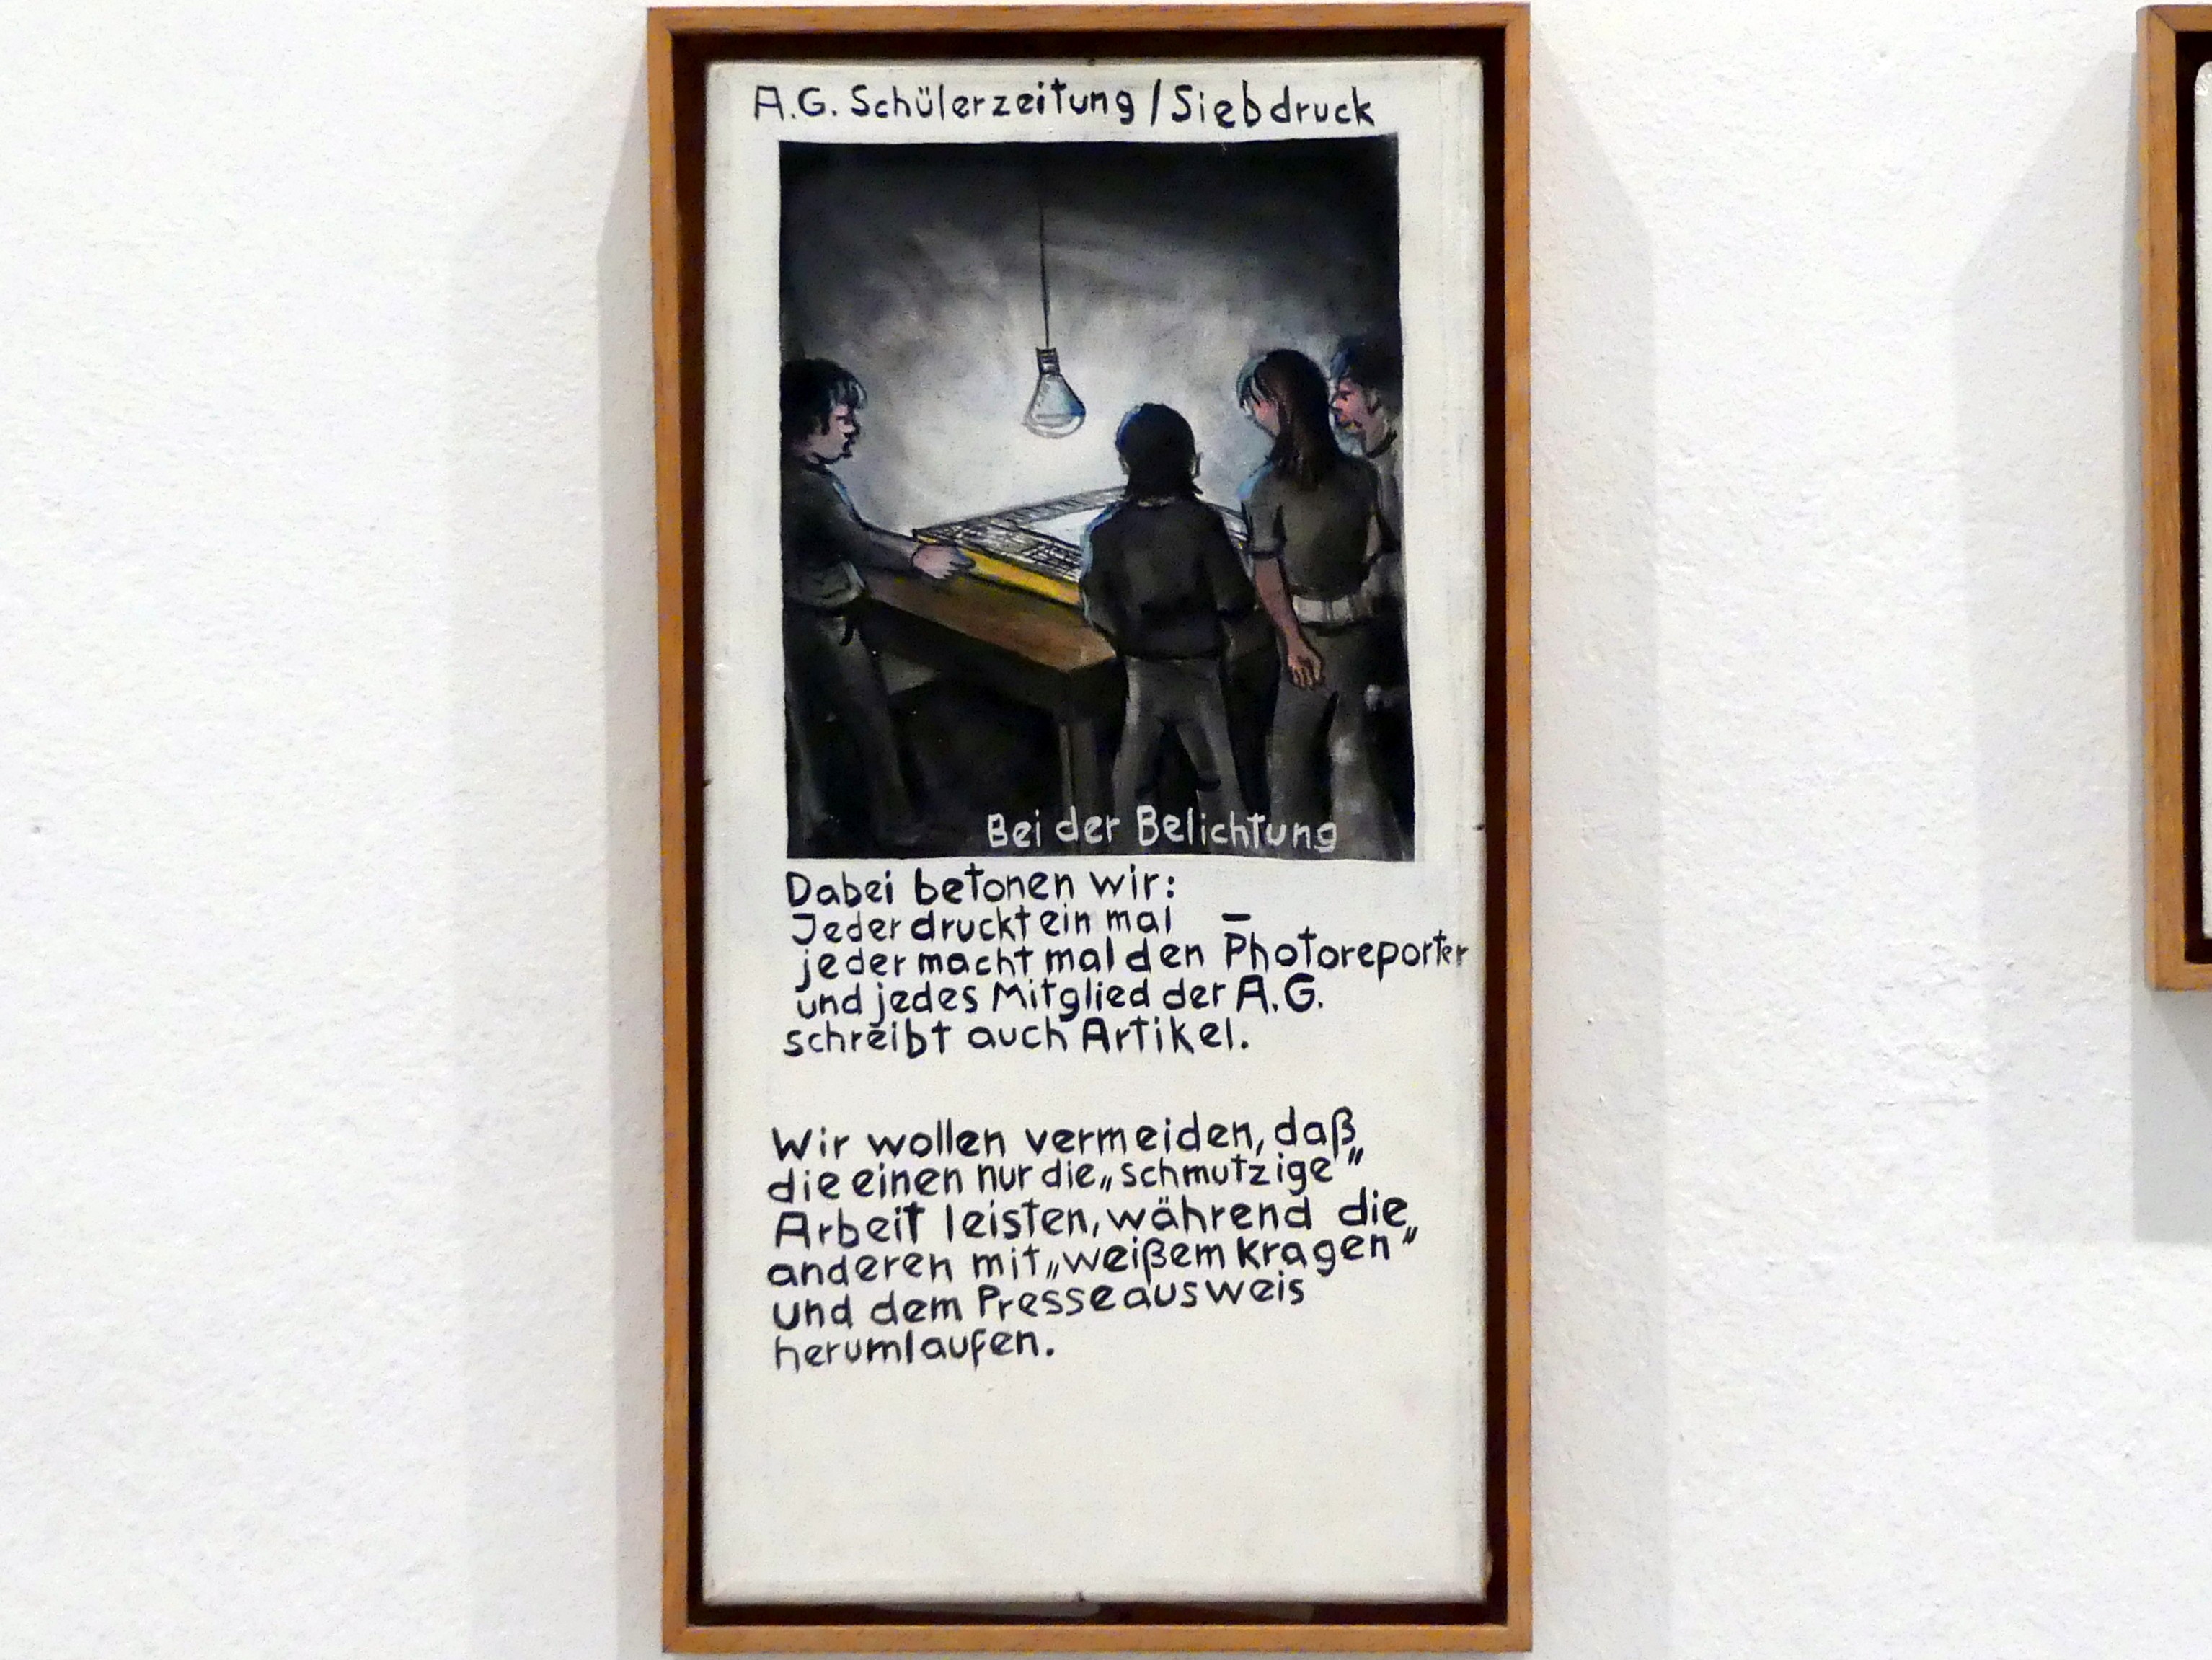 A.G. Schülerzeitung / Siebdruck
Bei der Belichtung
Dabei betonen wir:
Jeder druckt ein mal
jeder macht mal den Photoreporter
und jedes Mitglied der A.G.
schreibt auch Artikel.
Wir wollen vermeiden, daß
die einen nur die „schmutzige"
Arbeit leisten, während die
anderen mit „weißem Kragen"
und dem Presseausweis
herumlaufen.